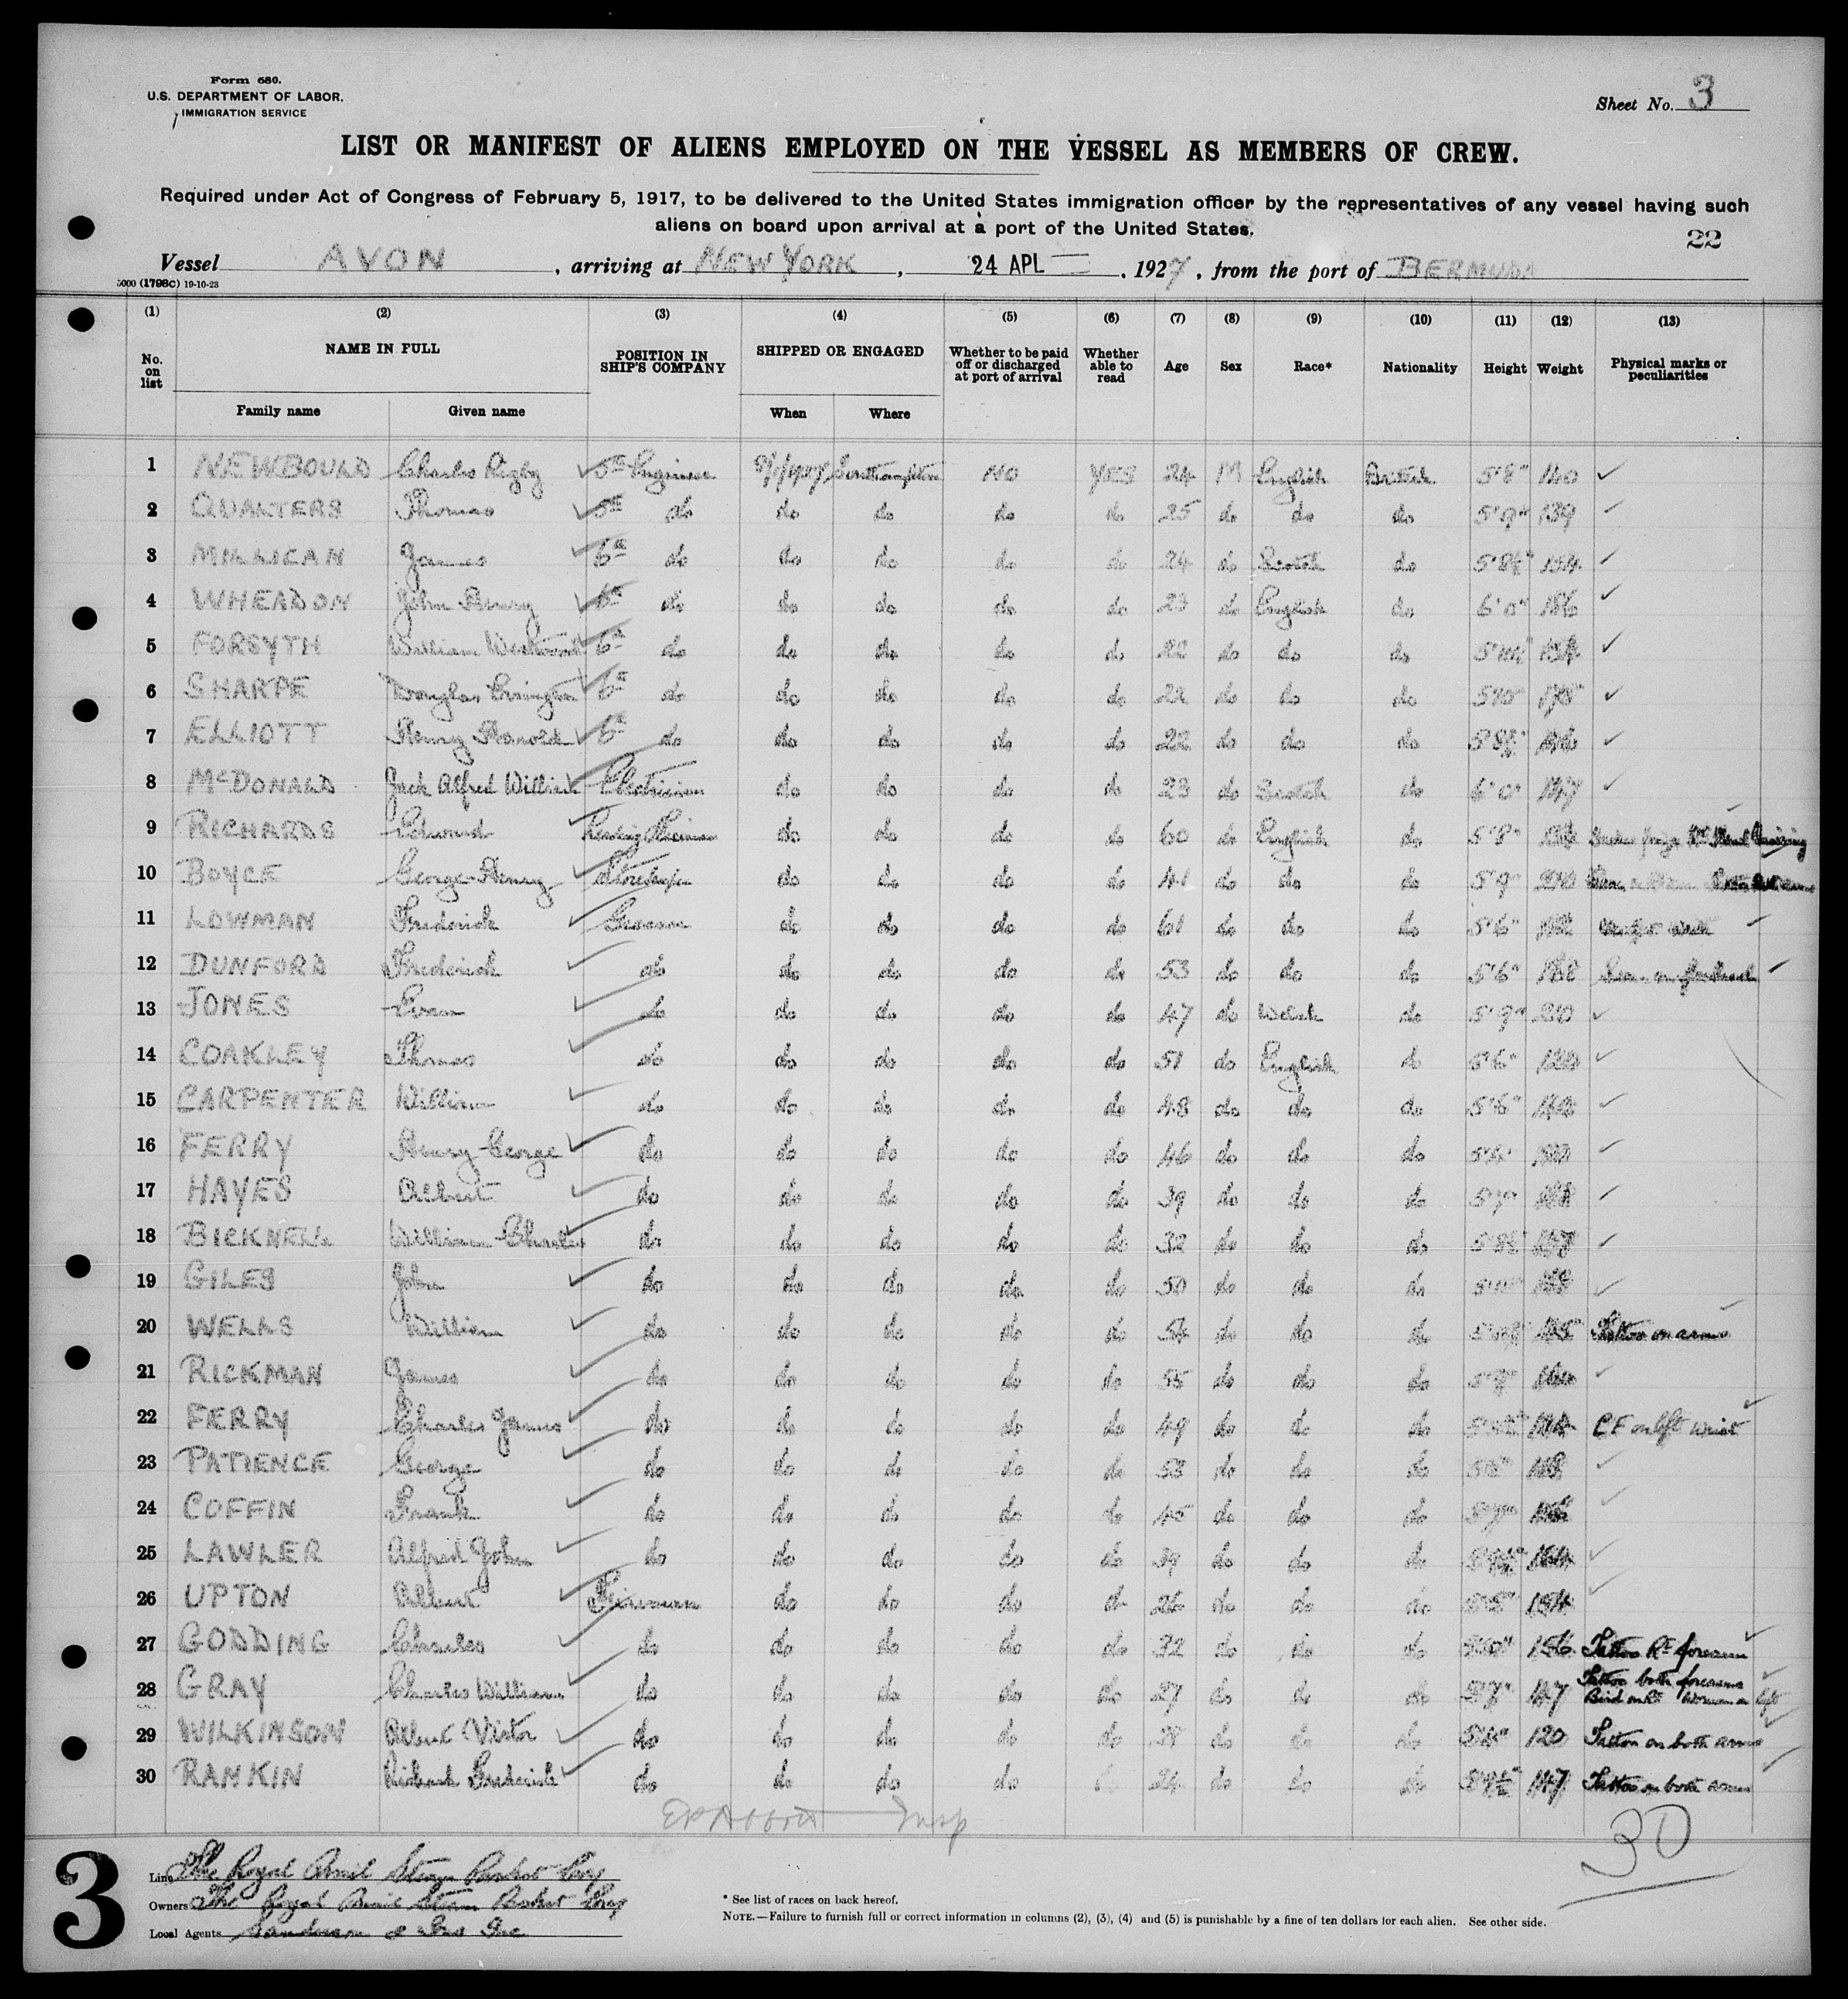 Form 680.
U.S. DEPARTMENT OF LABOR.
IMMIGRATION SERVICE
Sheet No. 3
LIST OR MANIFEST OF ALIENS EMPLOYED ON THE VESSEL AS MEMBERS OF CREW.
Required under Act of Congress of February 5, 1917, to be delivered to the United States immigration officer by the representatives of any vessel having such
aliens on board upon arrival at a port of the United States.
22
Vessel AVON, arriving at NEW YORK, 24 APL, 1927, from the port of BERMUDA
5000 (1798C) 19-10-23
(1) (2) (3) (4) (5) (6) (7) (8) (9) (10) (11) (12) (13)
No. on list NAME IN FULL POSITION IN SHIP'S COMPANY SHIPPED OR ENGAGED Whether to be paid off or discharged at port of arrival Whether able to read Age Sex Race* Nationality Height Weight Physical marks or peculiarities
Family name Given name When Where
1 NEWBOULD Charles Rigby 5th Engineer Southampton NO YES 24 M English British 5'8" 140
2 QUALTERS Thomas 5th do do do do do 25 do do do 5'9" 139
3 MILLICAN James 6th do do do do do 24 do Scotch do 5'8½" 154
4 WHEADON John Henry 6th do do do do do 23 do English do 6'0" 186
5 FORSYTH William 6th do do do do do 22 do do do
6 SHARPE Douglas Errington 6th do do do do do 22 do do do 5'10"
7 ELLIOTT Henry Harold 6th do do do do do 22 do do do 5'8½"
8 McDONALD Jack Alfred William Electrician do do do do 23 do Scotch do 6'0" 147
9 RICHARDS Edward Leading Fireman do do do do 60 do English do 5'8"
10 BOYCE George Henry Storekeeper do do do do 41 do do do 5'9"
11 LOWMAN Frederick Greaser do do do do 61 do do do 5'6"
12 DUNFORD Frederick do do do do do 53 do do do 5'6" 168 Scar on forehead
13 JONES Evan do do do do do 47 do Welsh do 5'9" 210
14 COAKLEY Thomas do do do do do 51 do English do 5'6"
15 CARPENTER William do do do do do 48 do do do 5'6"
16 FERRY Henry George do do do do do 46 do do do
17 HAYES Albert do do do do do 39 do do do
18 BICKNELL William Charles do do do do do 32 do do do
19 GILES John do do do do do 50 do do do
20 WELLS William do do do do do 54 do do do Tattoo on arms
21 RICKMAN James do do do do do 55 do do do
22 FERRY Charles James do do do do do 49 do do do CF on left wrist
23 PATIENCE George do do do do do 53 do do do
24 COFFIN Frank do do do do do 45 do do do
25 LAWLER Alfred John do do do do do 39 do do do 164
26 UPTON Albert Fireman do do do do 26 do do do 154
27 GODDING Charles do do do do do 32 do do do 156 Tattoo Rt forearm
28 GRAY Charles William do do do do do 27 do do do 5'7" 147 Tattoo both forearms
Bird on Rt Woman on left
29 WILKINSON Albert Victor do do do do do 38 do do do 5'4" 120 Tattoo on both arms
30 RANKIN Richard Frederick do do do do 24 do do do 147 Tattoo on both arms
Insp
30
3
Line The Royal Mail Steam Packet Coy
Owners The Royal Mail Steam Packet Coy
Local Agents Sanderson & Son Inc
* See list of races on back hereof.
NOTE.—Failure to furnish full or correct information in columns (2), (3), (4) and (5) is punishable by a fine of ten dollars for each alien. See other side.